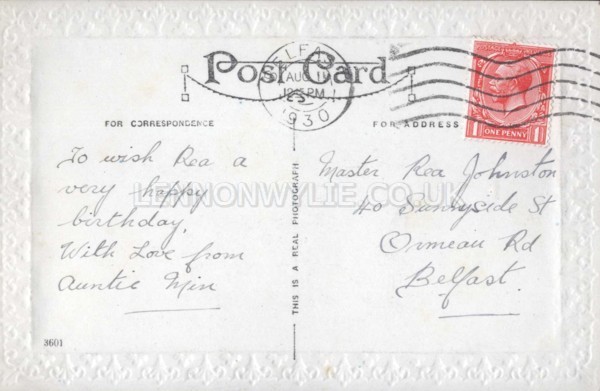 Post Card
BELFAST
AUG 11
12.15 PM
1930
ONE PENNY
FOR CORRESPONDENCE
FOR ADDRESS
To wish Rea a
very happy
birthday,
With Love from
Auntie Min
THIS IS A REAL PHOTOGRAPH
Master Rea Johnston
40 Sunnyside St
Ormeau Rd
Belfast.
LENNONWYLIE.CO.UK
3601